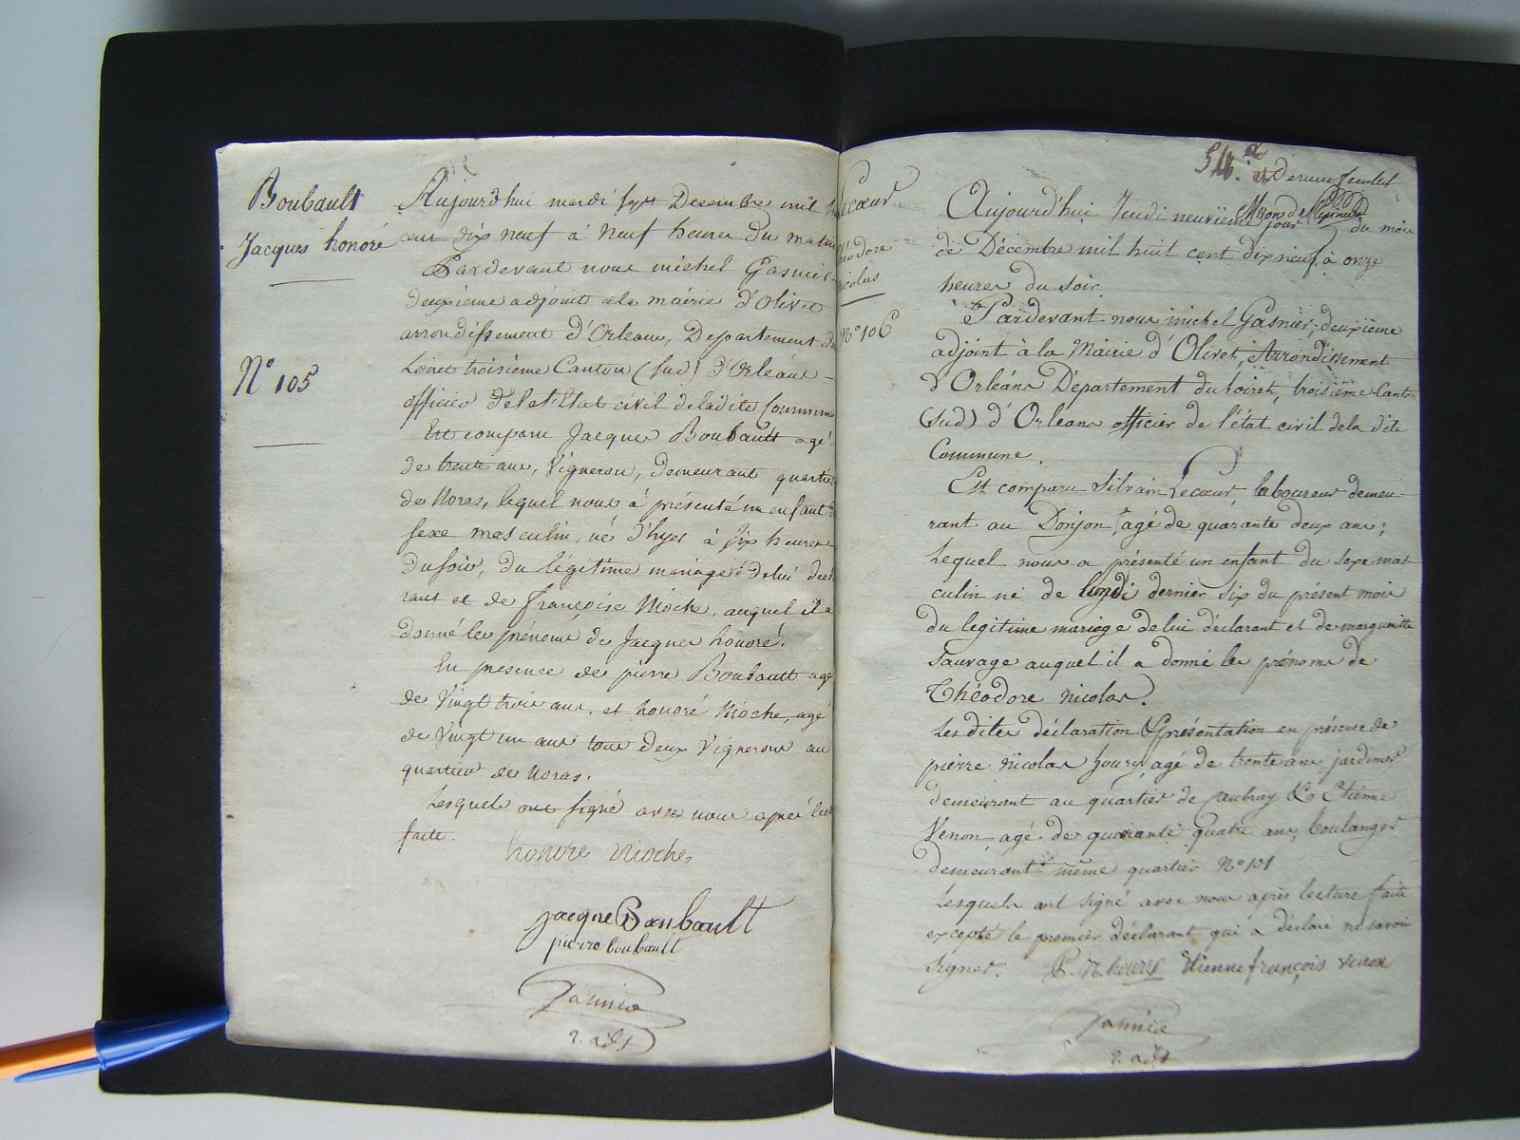 Boubault
Jacques honoré
N° 105
Aujourd'hui mardi sept Decembre mil
cent dix neuf à neuf heures du matin
Pardevant nous michel Gasnier
deuxième adjoint à la mairie d'Olivet
arrondissement d'Orleans, Departement du
Loiret troisième Canton (sud) d'Orléans
officier de l'Etat civil de ladite Commune
Est comparu Jacques Boubault agé
de trente ans, Vigneron, demeurant quartier
de Noras, lequel nous à présenté un enfant
sexe masculin, né d'hyer à six heures
du soir, du légitime mariage de lui decla
rant et de françoise Nioche, auquel il a
donné les prénoms de Jacques honoré.
En presence de pierre Boubault agé
de Vingt trois ans, et honoré Nioche, agé
de Vingt un ans tous deux Vignerons au
quartier de Noras.
Lesquels ont signé avec nous après lect
faite.
honore nioche
jacque Boubault
pierre boubault
Gasnier
2. adjt
Lecœur
Théodore
Nicolas
N° 106
54 et dernier feuillet
Aujourd'hui Jeudi neuvième jour du mois
de Décembre mil huit cent dix neuf, à onze
heures du soir.
Pardevant nous michel Gasnier, deuxième
adjoint à la Mairie d'Olivet, Arrondissement
d'Orléans Département du Loiret, troisième Canton
(Sud) d'Orleans officier de l'état civil de la dite
Commune.
Est comparu Silvain Lecœur laboureur demeu-
rant au Donjon, agé de quarante deux ans;
Lequel nous a présenté un enfant du sexe mas
culin né de lundi dernier six du présent mois
du legitime mariage de lui déclarant et de margueritte
Sauvage auquel il a donné les prénoms de
Théodore nicolas.
Les dites déclaration & présentation en présence de
pierre nicolas houry, agé de trente ans jardinier
demeurant au quartier de & Etienne
Venon, agé de quarante quatre ans, boulanger
demeurant même quartier N° 101
Lesquels ont signé avec nous après lecture faite
excepté le premier déclarant qui a déclaré ne savoir
signer. P. N houry Etienne françois venon
Gasnier
2. adjt